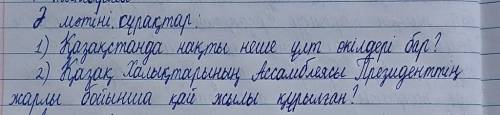 2 мәтіні, сұрақтар:
1) Қазақстанда нақты неше ұлт өкілдері бар?
2) Қазақ Халықтарының Ассамблеясы Президенттің
жарлы бойынша қай жылы құрылған?